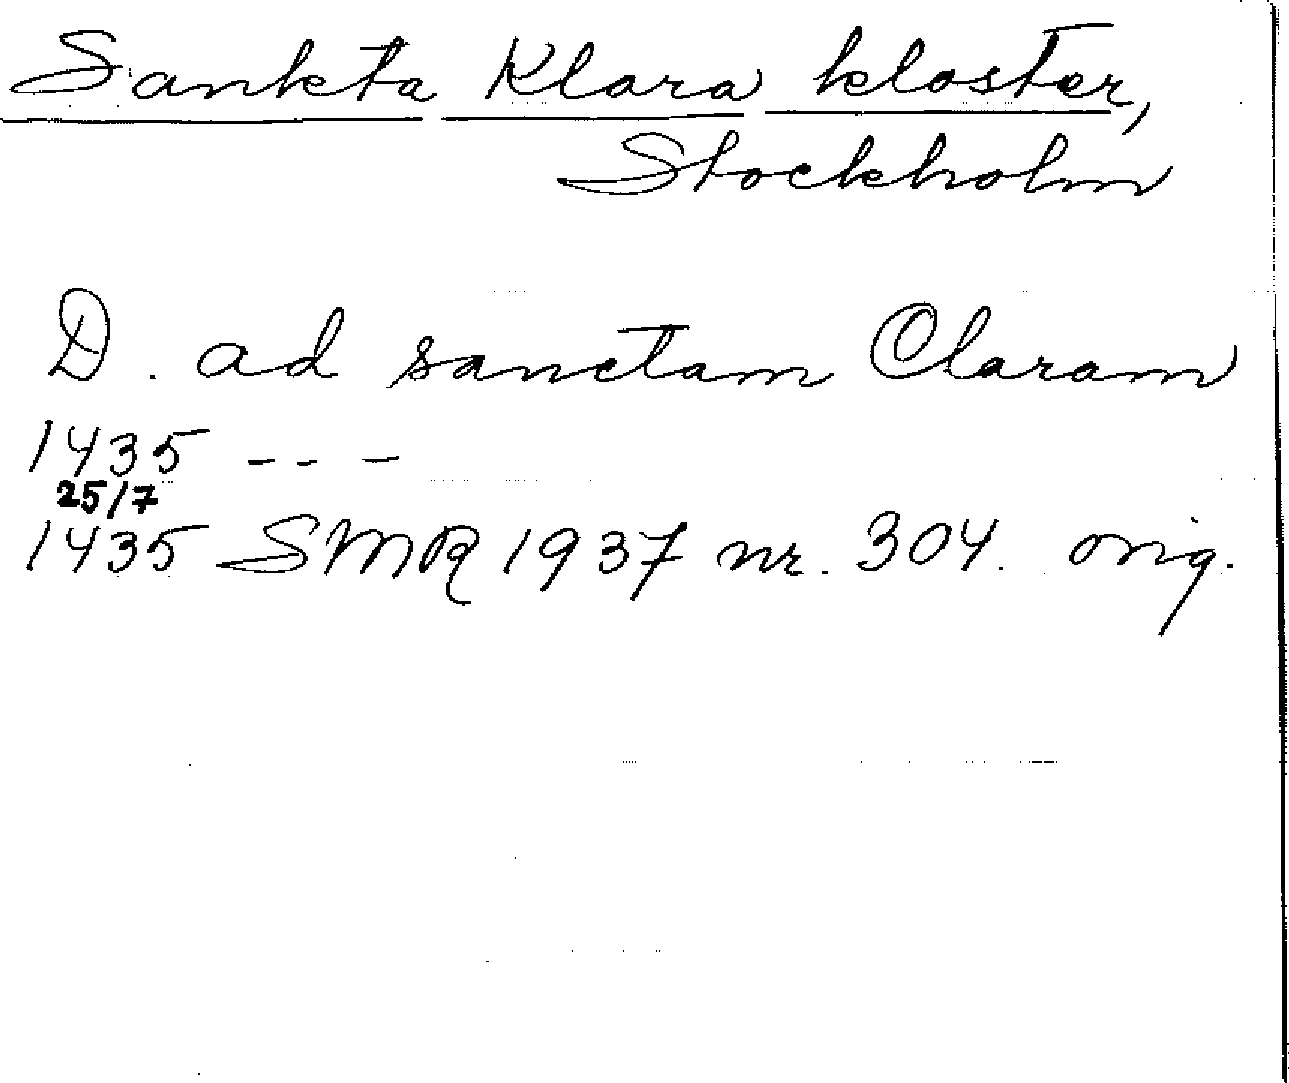 Sankta Klara kloster,
Stockholm
D. ad sanctam Claram
1435 - - -
25/7
1435 SMR 1937 nr. 304. orig.